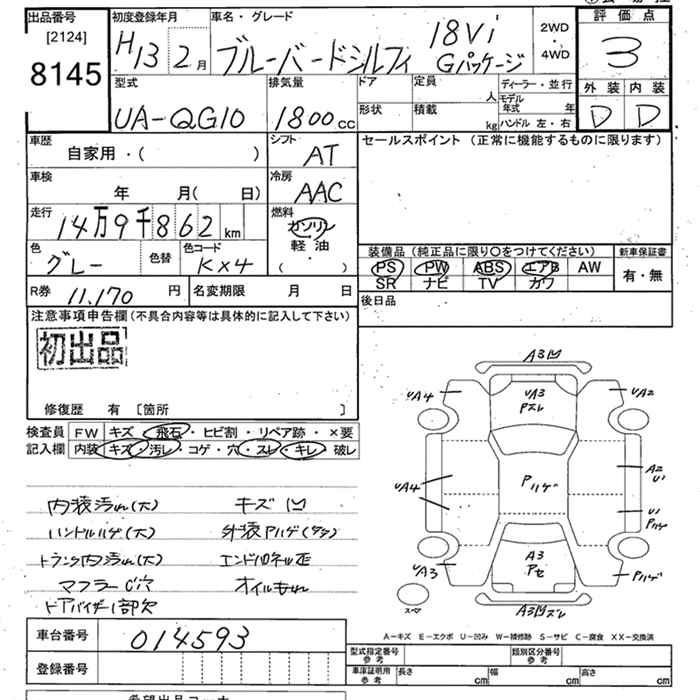 出品番号
[2124]
8145
初度登録年月
H13 2月
車名・グレード
ブルーバードシルフィ
18Vi
Gパッケージ
2WD
・
4WD
評価点
3
外装 内装
D D
型式
UA-QG10
排気量
1800cc
ドア
定員
人
形状
積載
kg
ディーラー・並行
モデル年式 年
ハンドル 左・右
車歴
自家用・( )
シフト
AT
セールスポイント (正常に機能するものに限ります)
車検
年 月( 日)
冷房
AAC
走行
14万9千862km
燃料
ガソリン
軽油
・
( )
色
グレー
色替
色コード
KX4
装備品 (純正品に限り○をつけてください)
PS PW ABS エアB AW
SR ナビ TV カワ
新車保証書
有・無
R券 11,170 円
名変期限 月 日
後日品
注意事項申告欄 (不具合内容等は具体的に記入して下さい)
初出品
修復歴 有 [箇所 ]
検査員記入欄
FW キズ・飛石・ヒビ割・リペア跡・×要
内装 キズ・汚レ・コゲ・穴・スレ・キレ・破レ
内装汚れ(大) キズ凹
ハンドルハゲ(大) 外装Pハゲ(多々)
トランク内汚れ(大) エンドパネル歪
マフラーC穴 オイルもれ
ドアバイザー1部欠
A3凹
UA4
UA3
Pズレ
UA2
UA4
Pハゲ
A2
U1
U1
Pハゲ
UA3
A3
Pセ
Pハゲ
スペア
A3凹ズレ
A-キズ E-エクボ U-凹み W-補修跡 S-サビ C-腐食 XX-交換済
車台番号
014593
登録番号
型式指定番号
参考
類別区分番号
参考
車庫証明用
参考
長さ cm
幅 cm
高さ cm